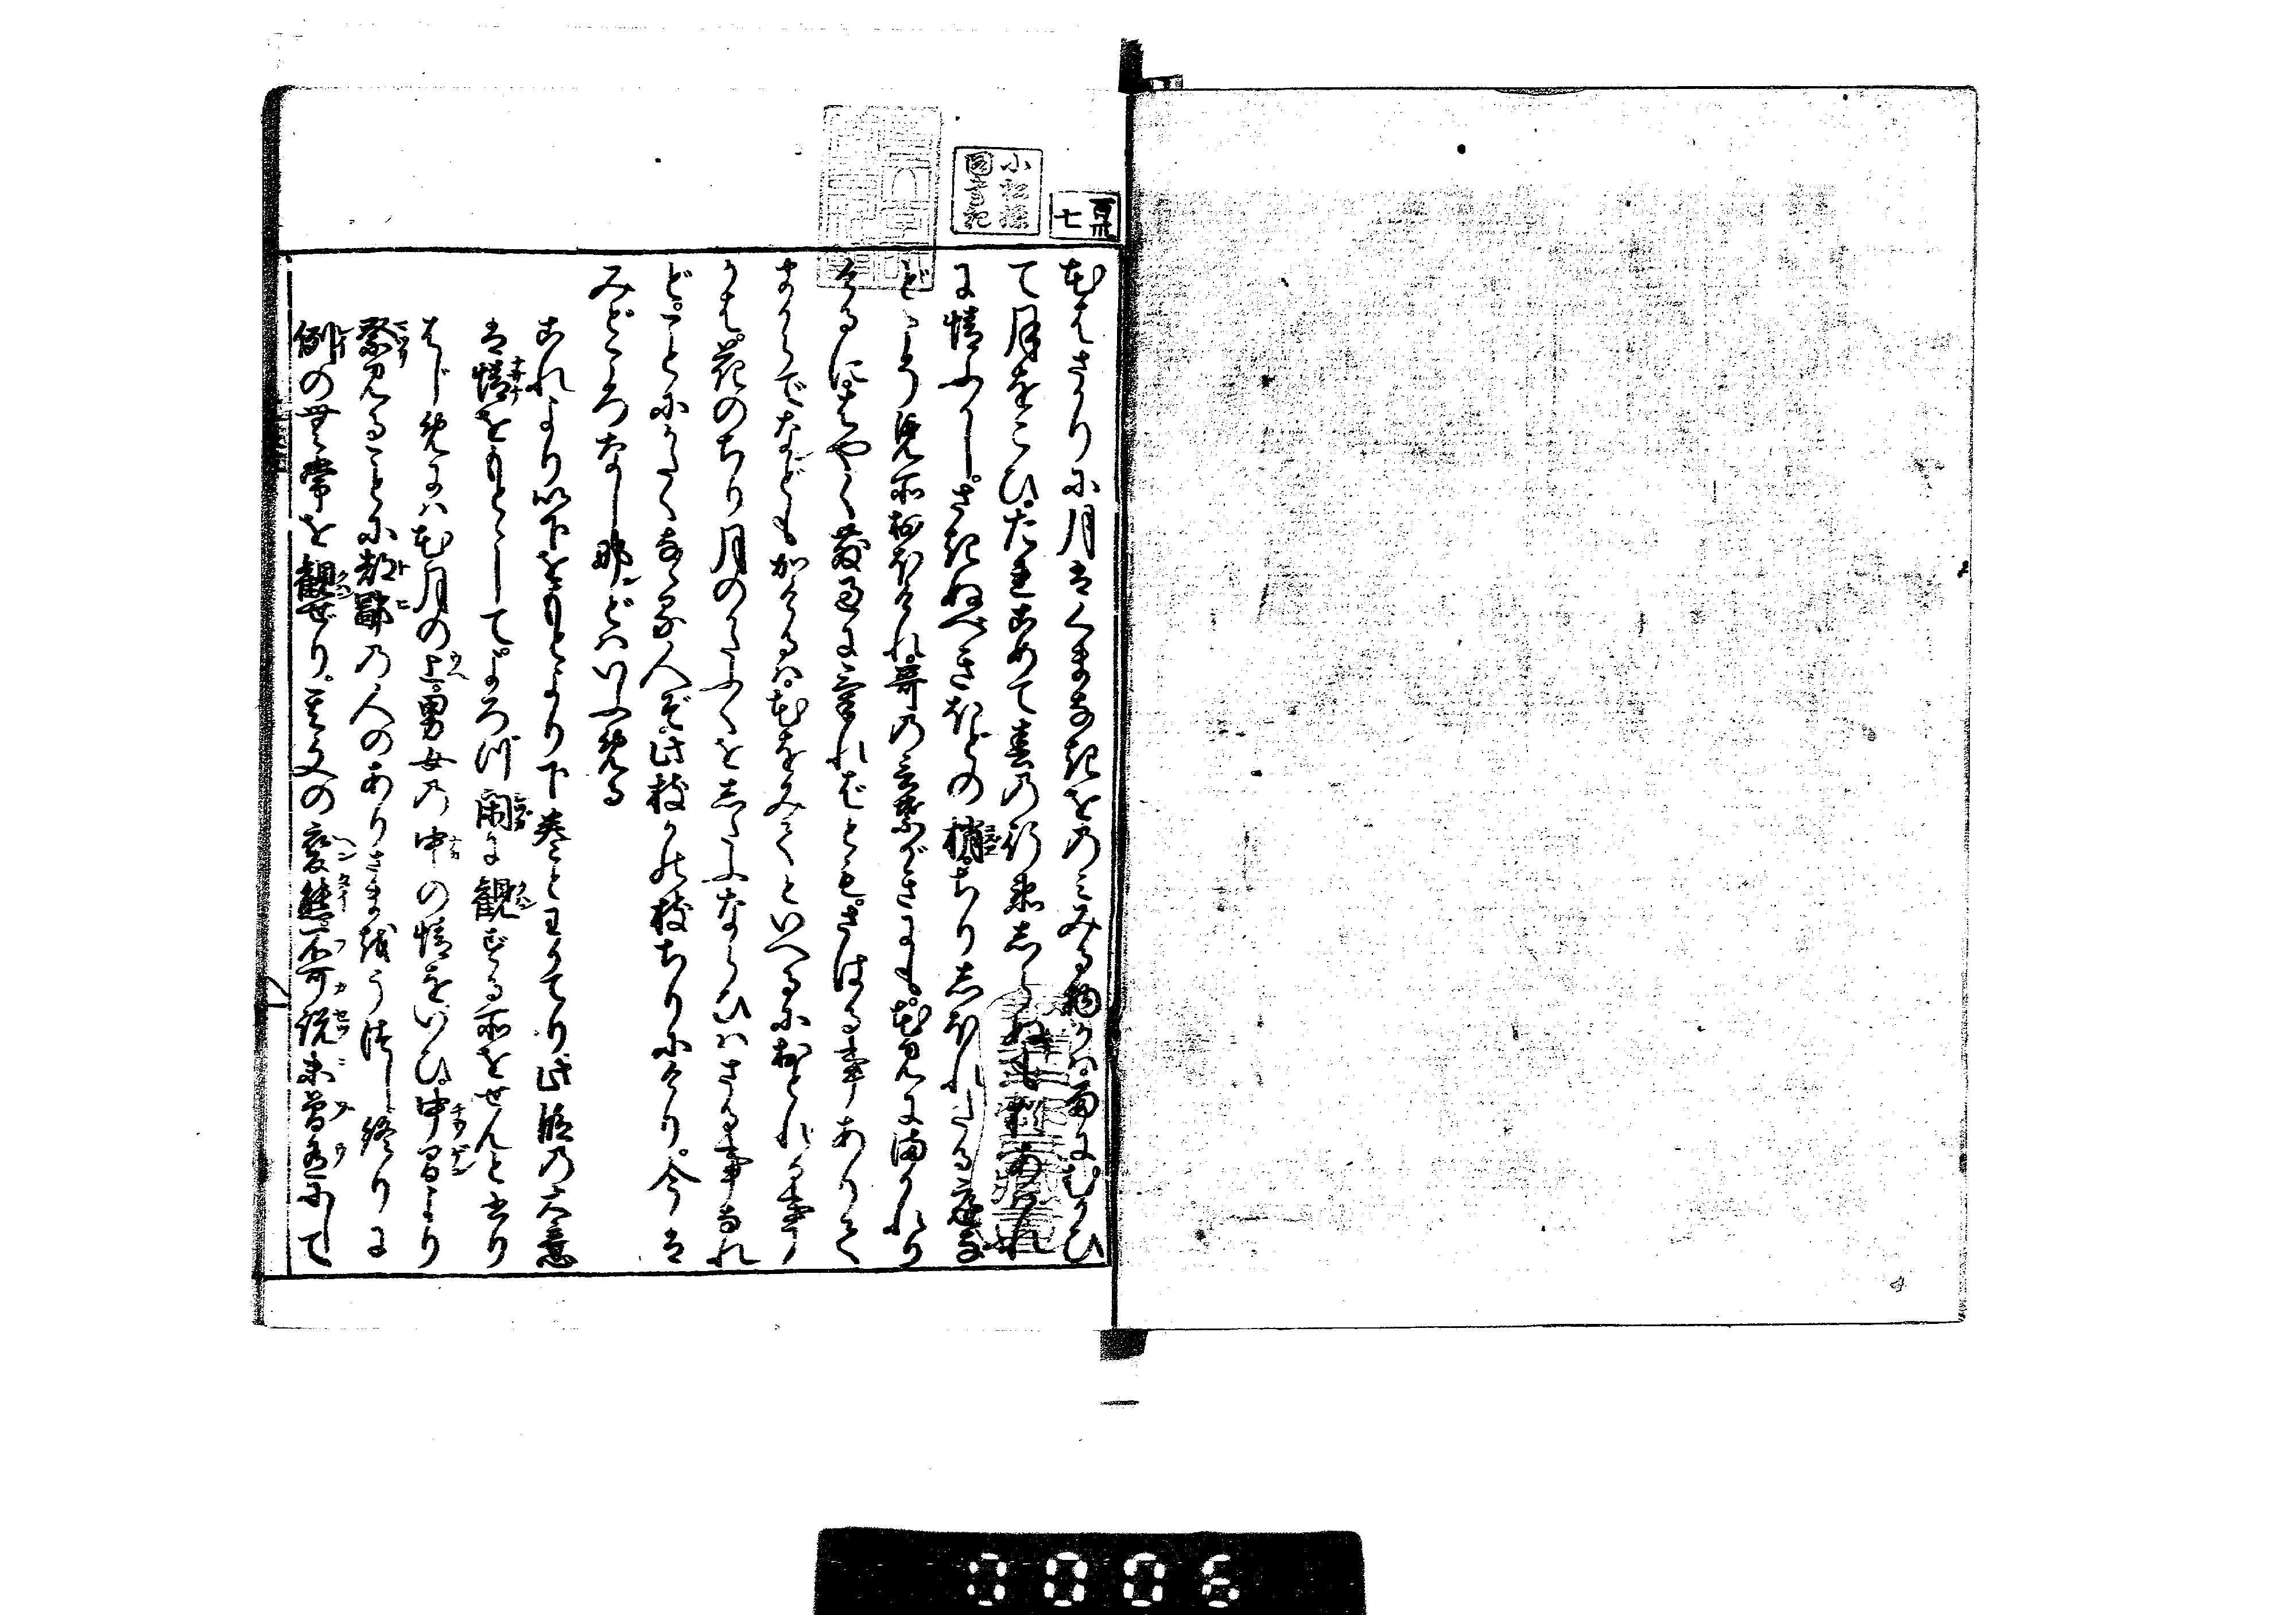 百卅七
小松操図書記
花はさかりに月はくまなきをのみみる物かは雨にむかひ
て月をこひたれこめて春の行衛しらぬも猶あはれ
に情ふかしさきぬべきほどの梢ちりしほれたる庭な
どこそ見所おほけれ哥の言葉がきにも花見にまかれり
けるにはやく散過にければともさはる事ありて
まからでなどもかけるは花をみてといへるにおとれる事
かは花のちり月のかたふくをしたふならひはさる事なれ
どことにかたくななる人ぞ此枝かの枝ちりにけり今は
みどころなしなどはいふめる
これより以下をもとより下巻とわかてり此段の大意
は情をもとゝしてよろづ閑に観ずる所をせんと書り
はじめには花月の上男女の中の情をいひ中間より
祭見ることに都鄙の人のありさまをうつし終りに
例の無常を観ぜり其文の変態不可説未曾有にして
0006